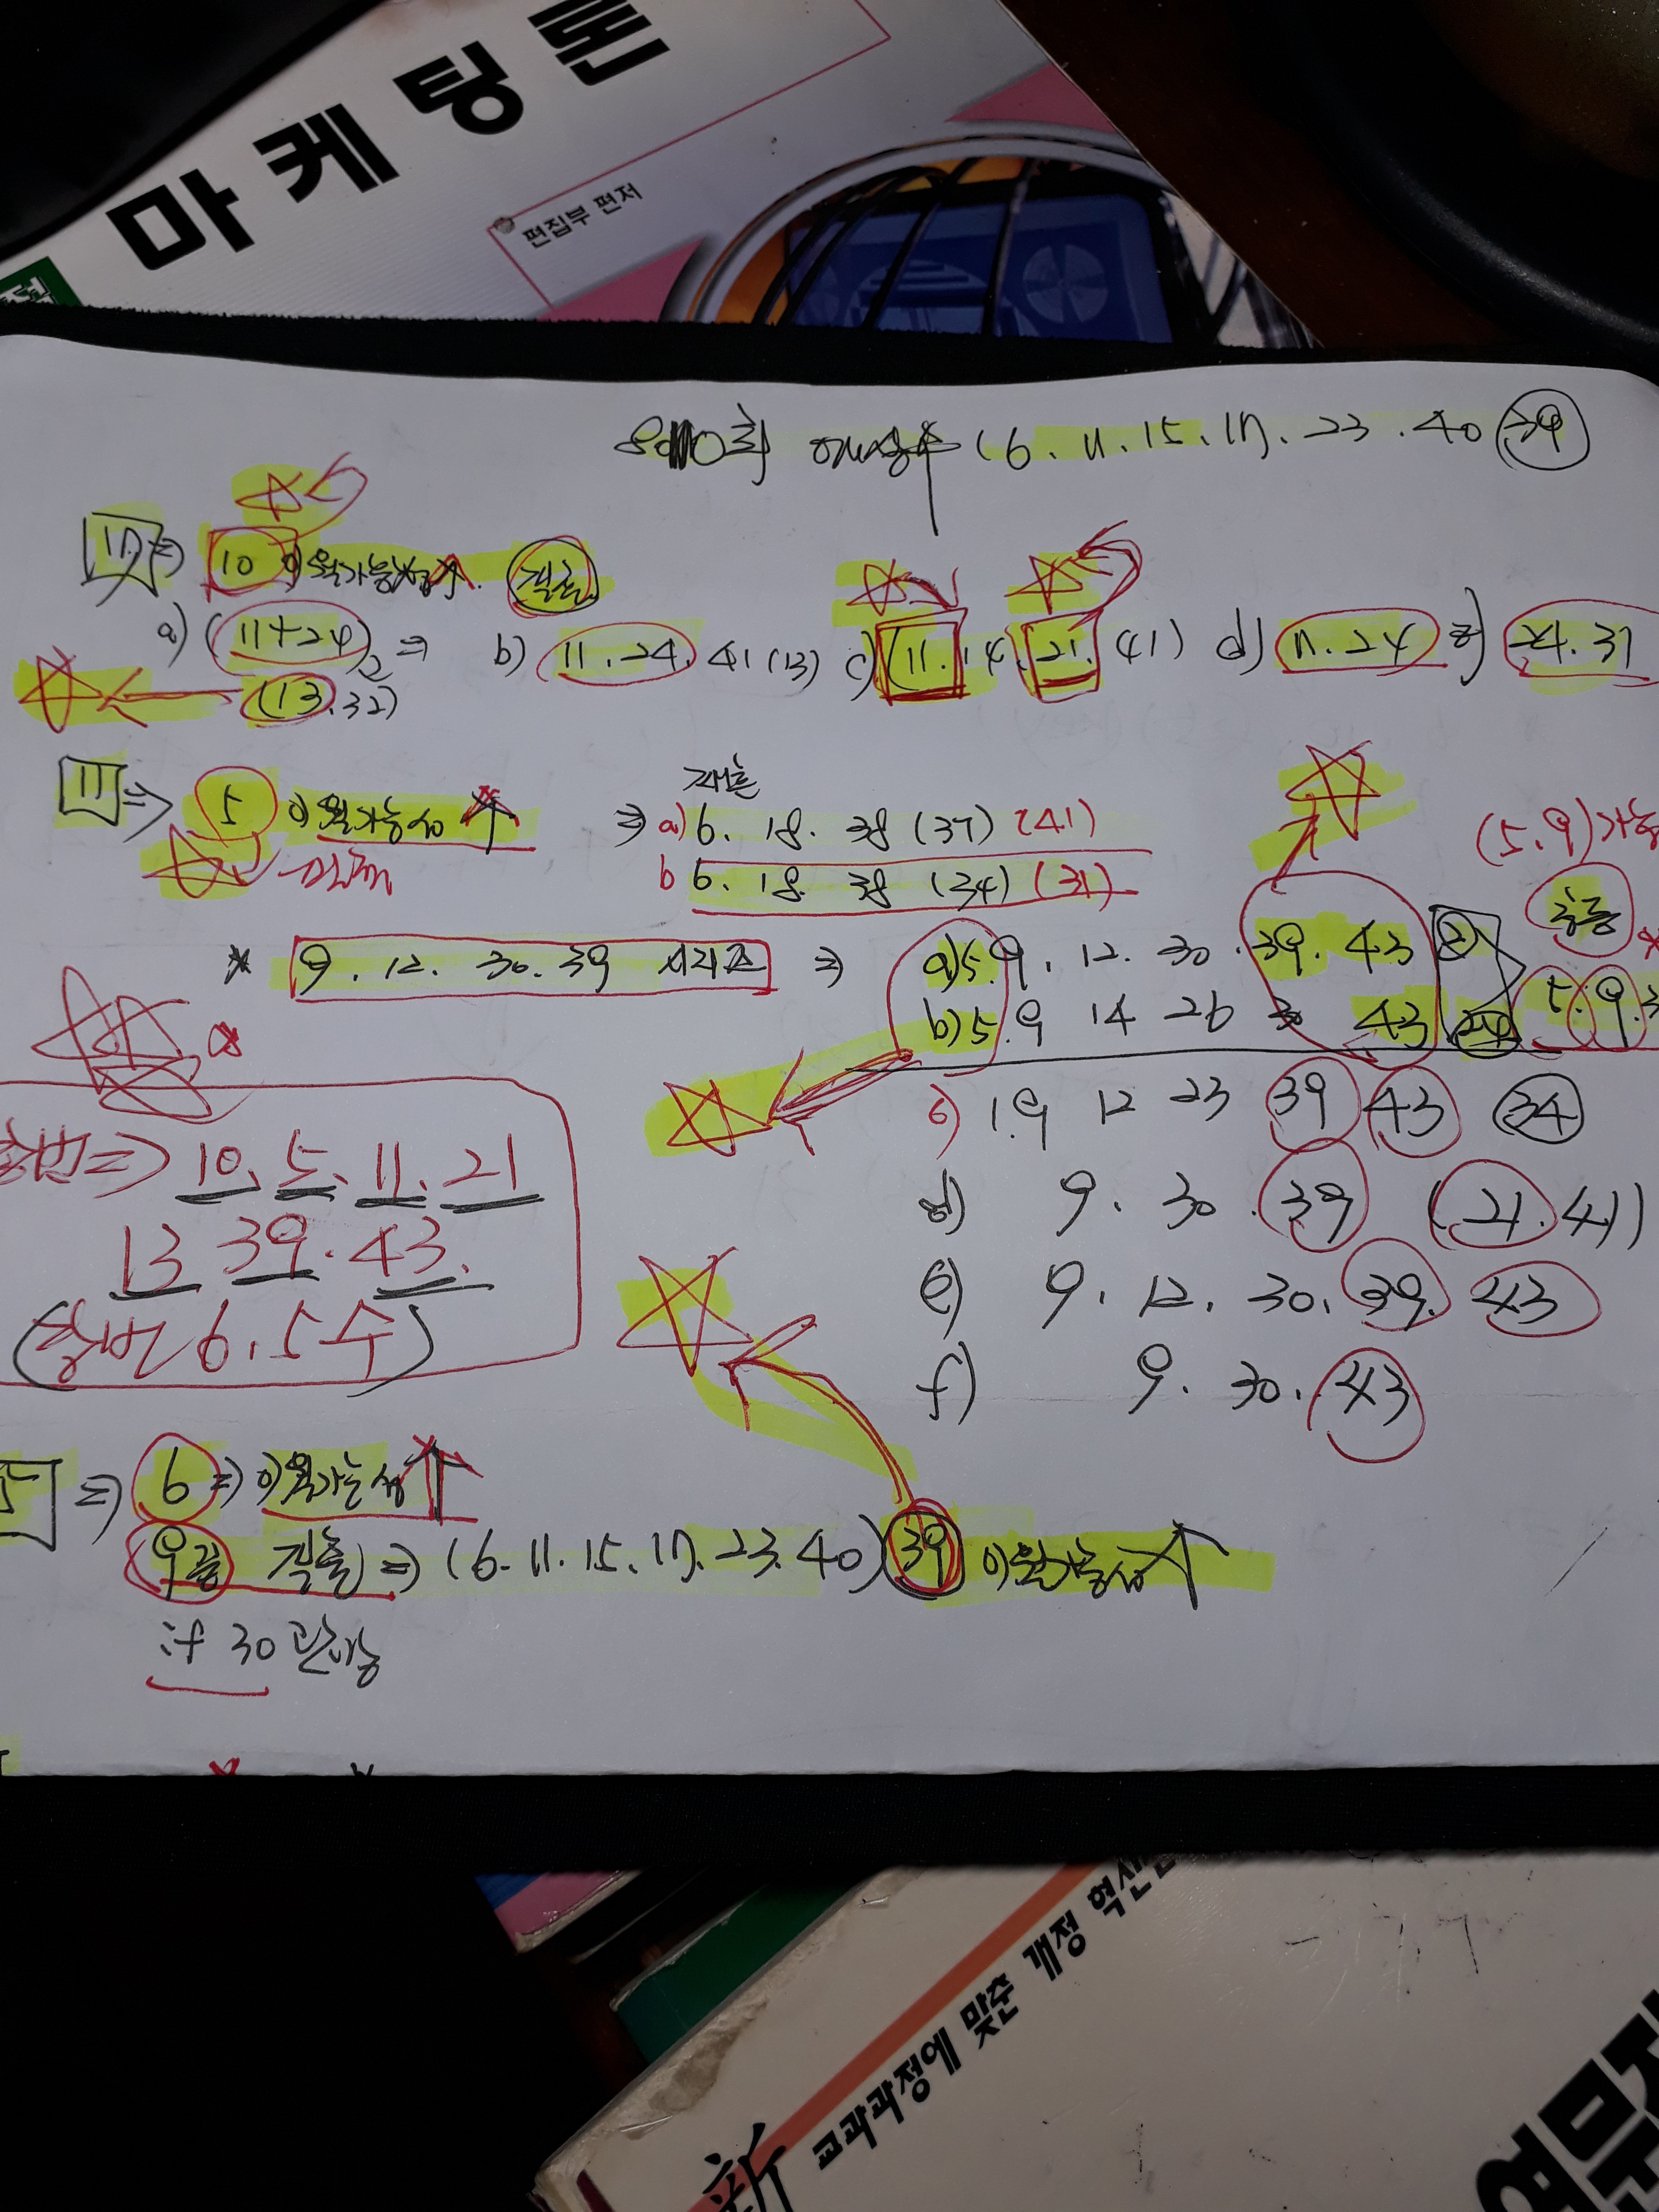 마케팅론
편집부 편저
예상수 (6. 11. 15. 17). 23. 40 39
17 ⇒ 10 이월가능성↑. 직출
a) (11+24)2 ⇒ b) 11. 24. 41 (13) c) (11. 14. 21. 41) d) 11. 24 24. 37
(13. 32)
11 ⇒ 5 이월가능성 ↑ ⇒ a) 6. 18. 38 (37) (41)
b 6. 18. 38 (34) (31)
(5.9)가능
* 9. 12. 30. 39 시리즈 ⇒ a) 5. 9. 12. 30. 39. 43 2
b) 5. 9 14 26 30 43 24 5. 9. 3
c) 1. 9 12 23 39 43 34
⇒ 10. 5. 11. 21
d) 9. 30. 39 (21. 41)
13 39. 43.
e) 9. 12. 30. 39. 43
(6. 5수)
f) 9. 30. 43
5 ⇒ 6 ⇒ 이월가능성↑
(9끝 직출) ⇒ (6. 11. 15. 17. 23. 40) 39 이월가능성↑
if 30 관가능
新 교과과정에 맞춘 개정 혁신판
영문